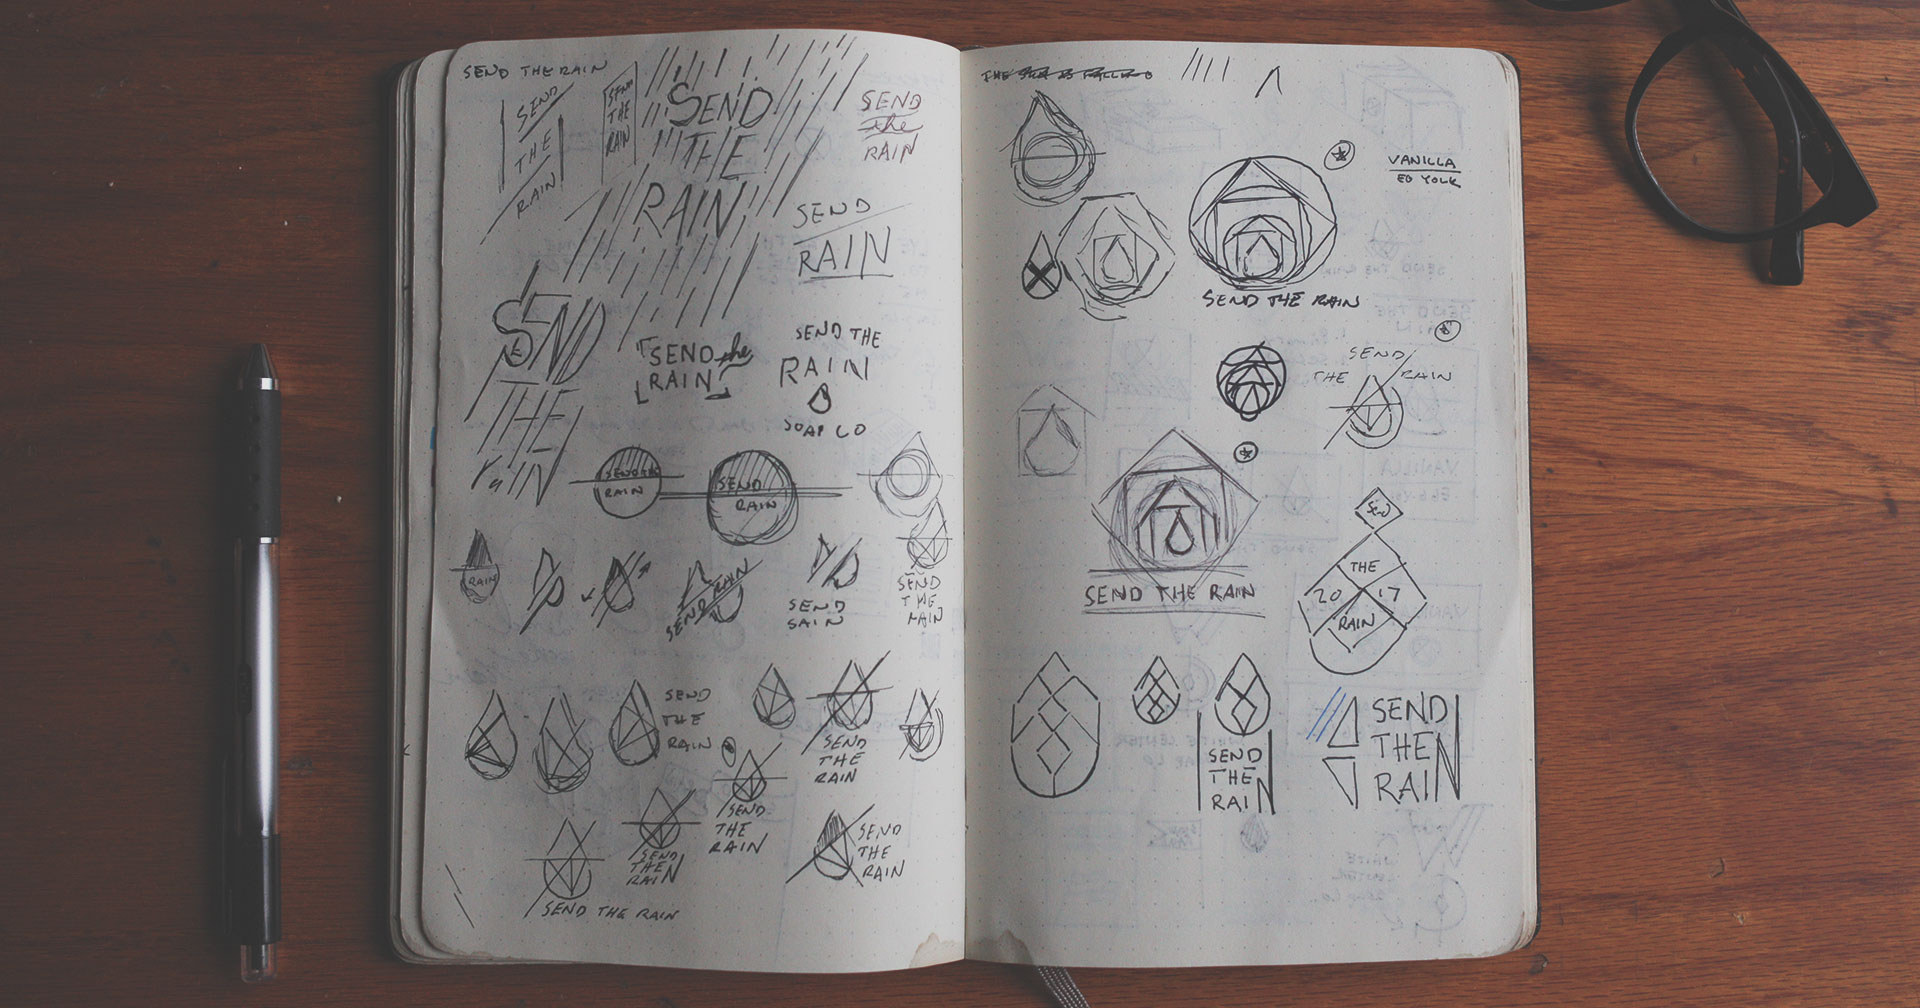 SEND THE RAIN
SEND
THE
RAIN
SEND
THE
RAIN
SEND
THE
RAIN
SEND
the
RAIN
SEND
RAIN
SEND
THE
RAIN
SEND the
RAIN
SEND THE
RAIN
SOAP CO
SEND THE
RAIN
SEND
RAIN
RAIN
SEND RAIN
SEND
SEND
SAIN
SEND
THE
RAIN
SEND
THE
RAIN
SEND
THE
RAIN
SEND
THE
RAIN
SEND
THE
RAIN
SEND
THE
RAIN
SEND THE RAIN
THE
VANILLA
SEND THE RAIN
SEND
THE RAIN
SEND THE RAIN
Send
THE
20 17
RAIN
SEND
THE
RAIN
SEND
THE
RAIN